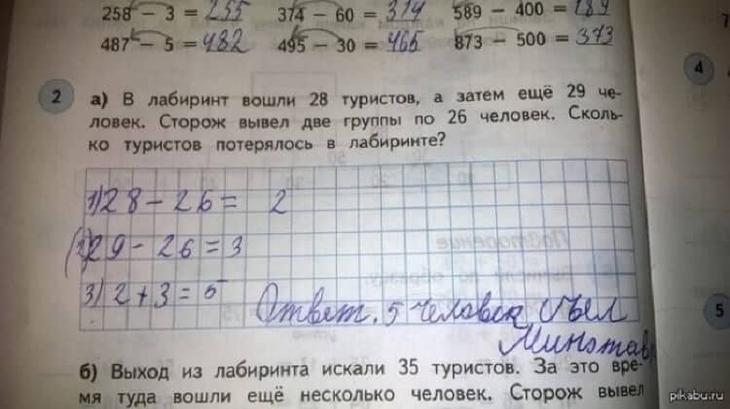 258 – 3 = 255 374 – 60 = 314 589 – 400 = 189
487 – 5 = 482 495 – 30 = 465 873 – 500 = 373
4
2 а) В лабиринт вошли 28 туристов, а затем ещё 29 че-
ловек. Сторож вывел две группы по 26 человек. Сколь-
ко туристов потерялось в лабиринте?
1) 28 – 26 = 2
2) 29 – 26 = 3
3) 2 + 3 = 5
Ответ. 5 человек съел
Минотавр
5
б) Выход из лабиринта искали 35 туристов. За это вре-
мя туда вошли ещё несколько человек. Сторож вывел
pikabu.ru